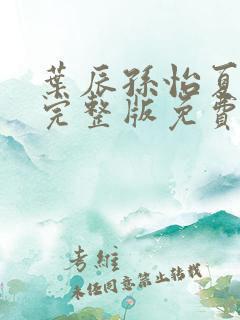 葉辰孫怡夏
完整版免費
考維
未任同意禁止转载